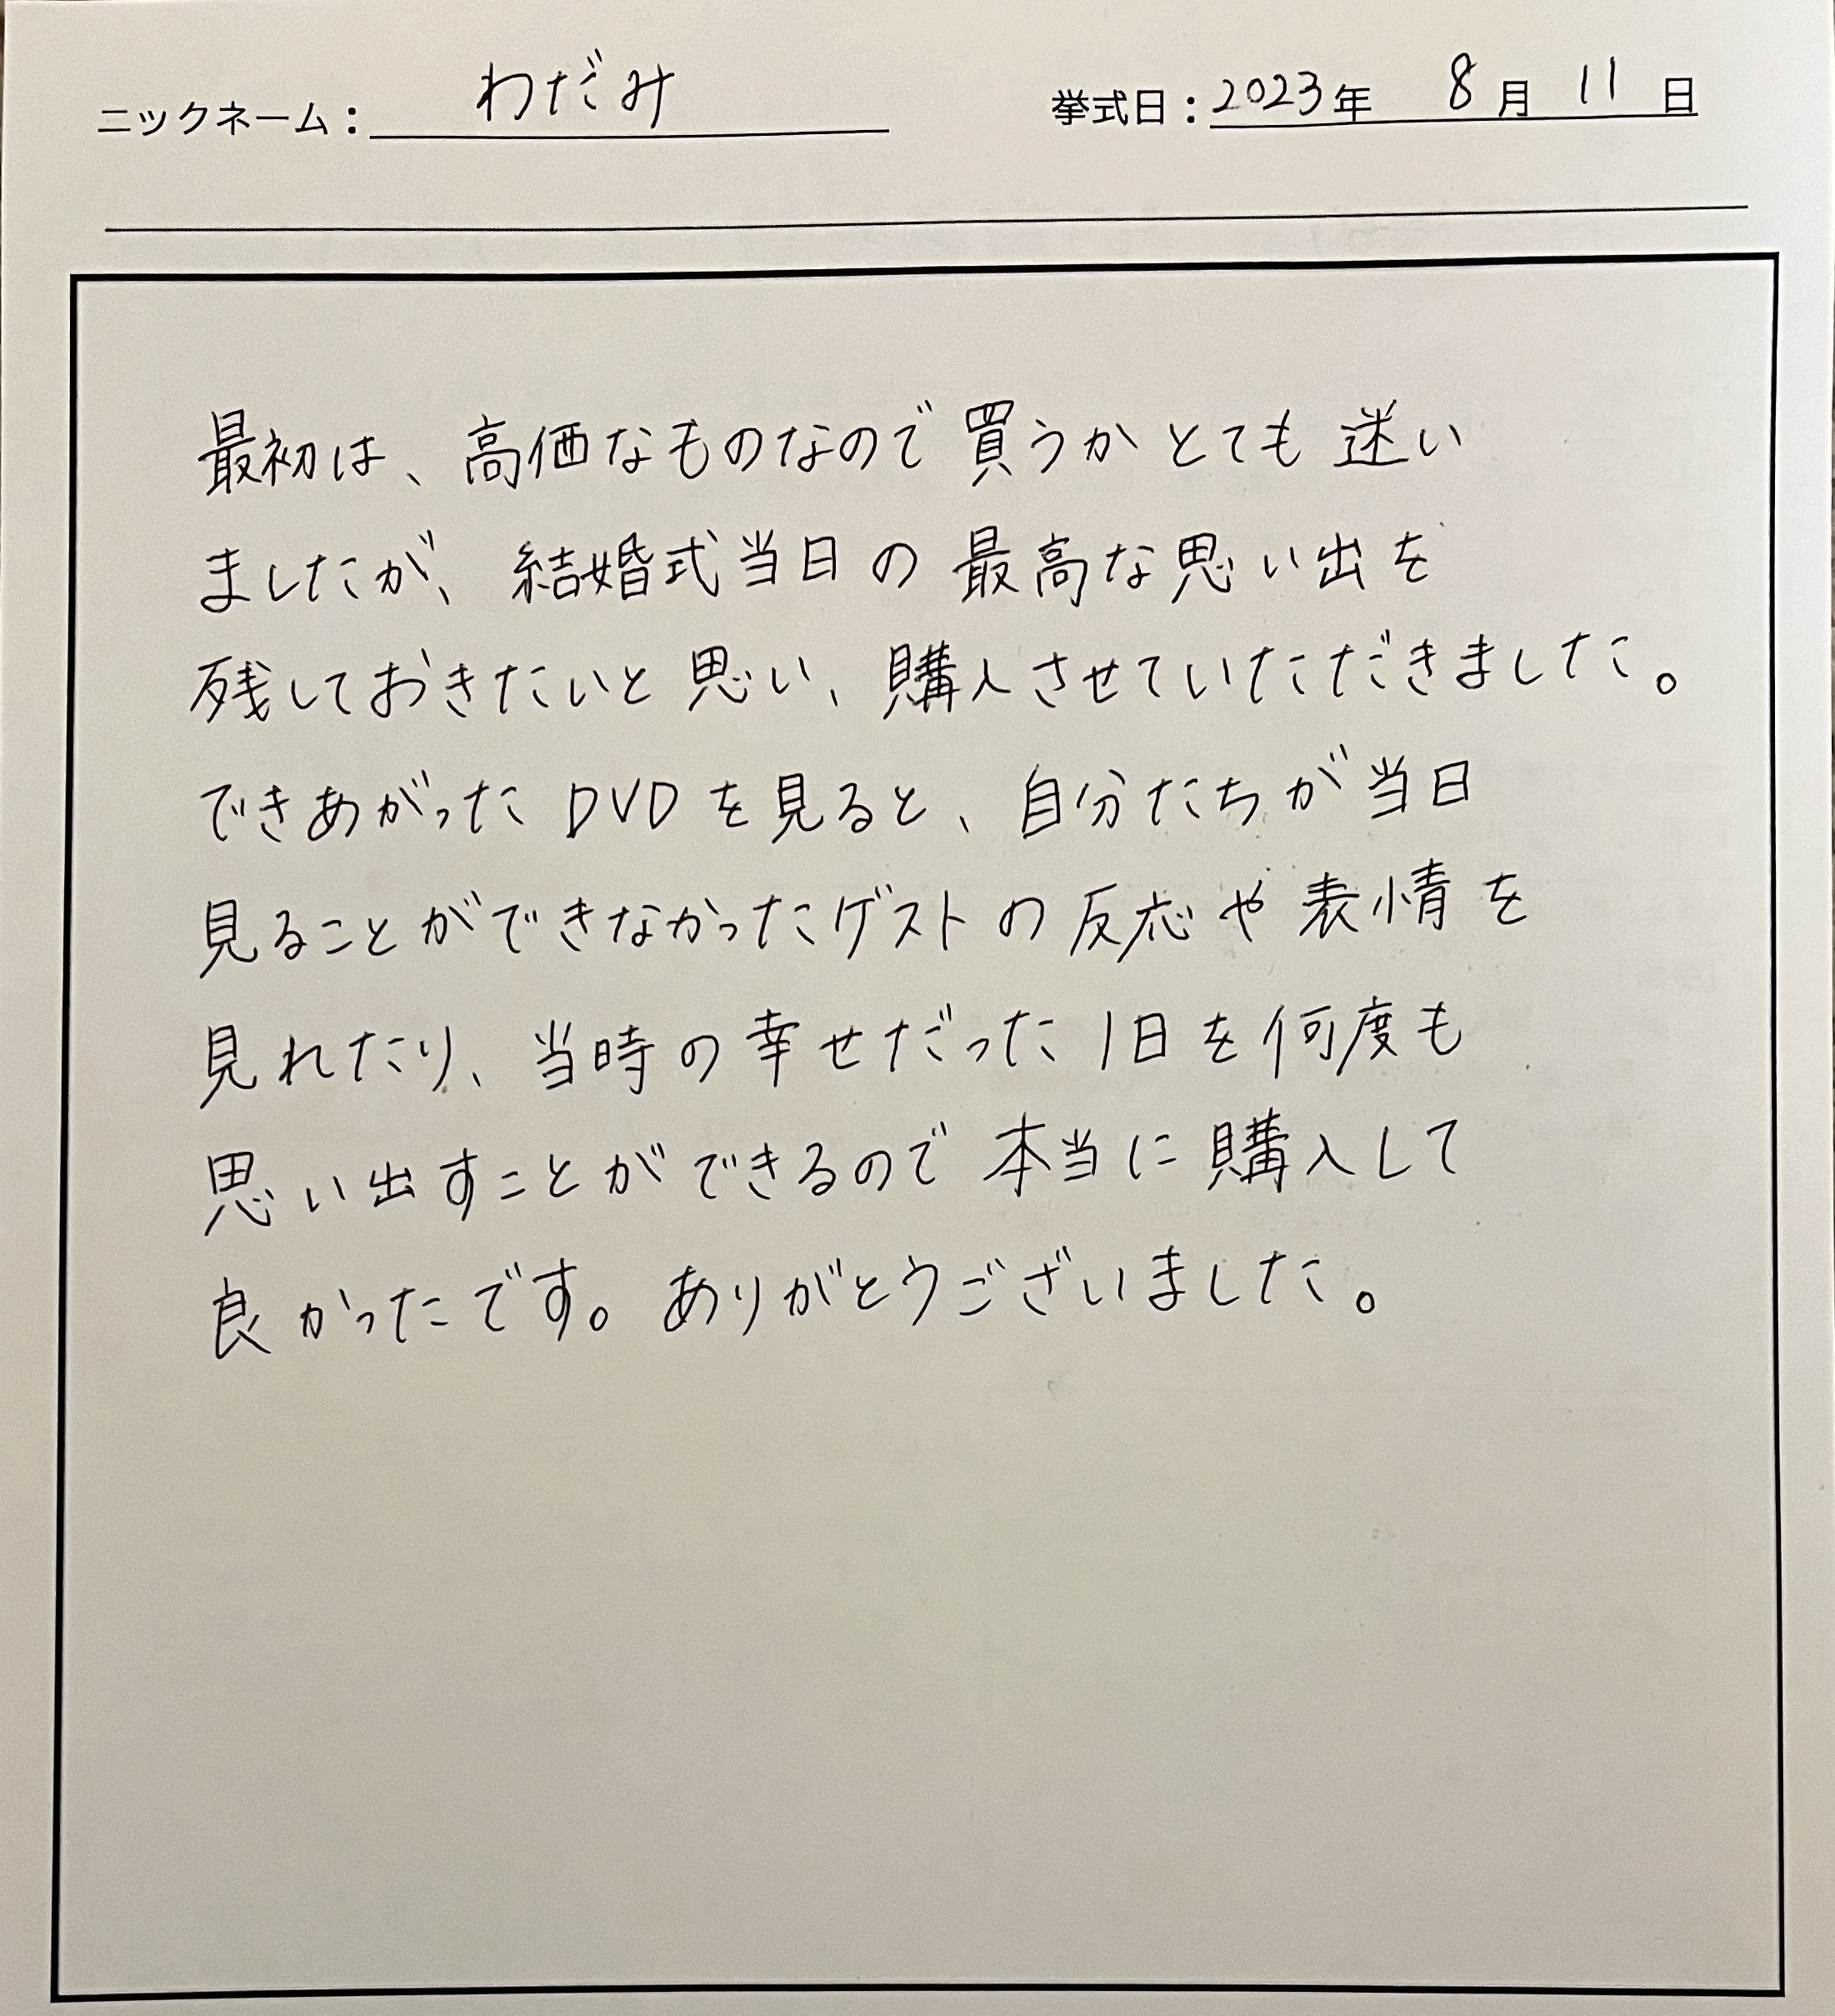 ニックネーム： わだみ 挙式日：2023年 8月 11日
最初は、高価なものなので買うかとても迷い
ましたが、結婚式当日の最高な思い出を
残しておきたいと思い、購入させていただきました。
できあがったDVDを見ると、自分たちが当日
見ることができなかったゲストの反応や表情を
見れたり、当時の幸せだった1日を何度も
思い出すことができるので本当に購入して
良かったです。ありがとうございました。